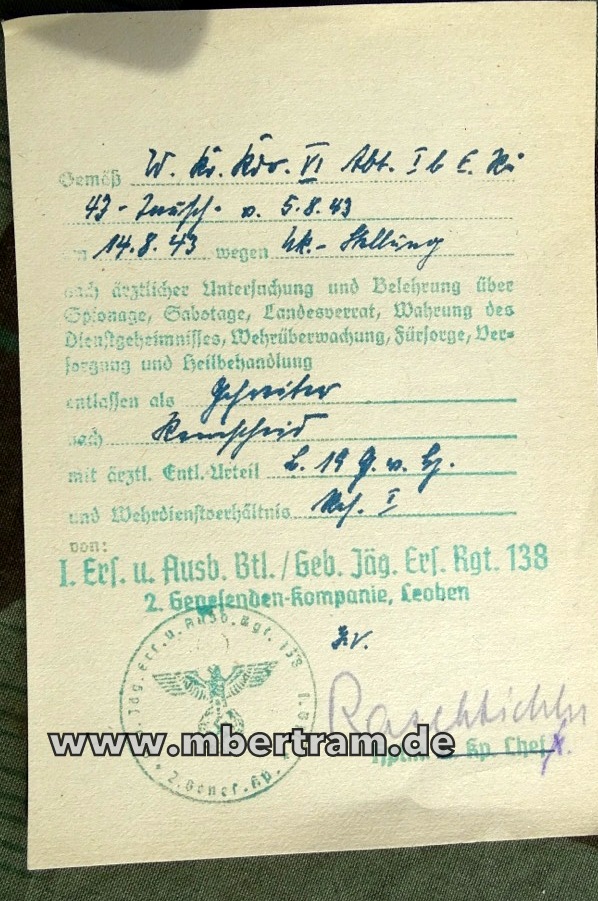 Gemäß W. Kr. Kdo. VI Abt. I b E. Ki
43- v. 5.8.43
14.8.43 wegen Uk.-Stellung
nach ärztlicher Untersuchung und Belehrung über
Spionage, Sabotage, Landesverrat, Wahrung des
Dienstgeheimnisses, Wehrüberwachung, Fürsorge, Ver-
sorgung und Heilbehandlung
entlassen als Gefreiter
nach Remscheid
mit ärztl. Entl.-Urteil L. 19 g. v. H.
und Wehrdienstverhältnis Res. I
von:
I. Ers. u. Ausb. Btl. / Geb. Jäg. Ers. Rgt. 138
2. Genesenden-Kompanie, Leoben
Jäg. Ers. u. Ausb. Rgt. 138
2. Genes. Kp.
www.mbertram.de
Hptm. u. Kp. Chef